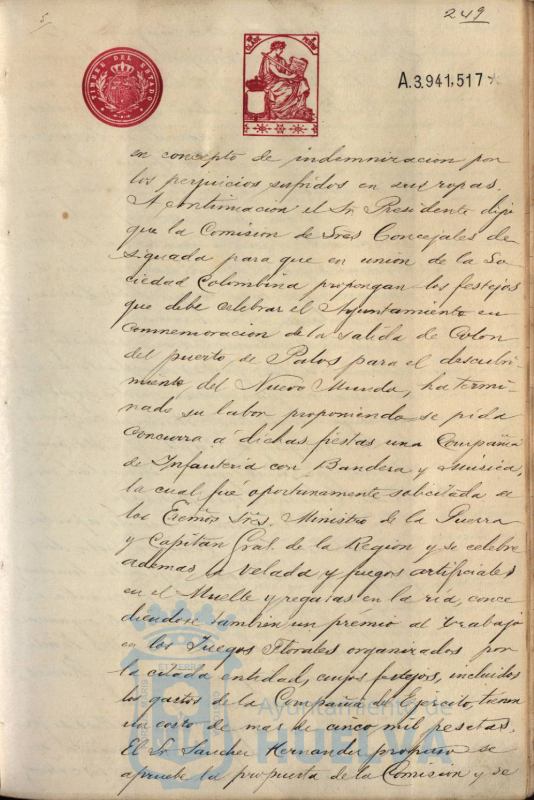 249
TIMBRE DEL ESTADO
A.3.941,517
en concepto de indemnizacion por
los perjuicios sufridos en sus ropas.
A continuacion el Sr Presidente dijo
que la Comision de Sres Concejales de
siguada para que en union de la So
ciedad Colombina propongan los festejos
que debe celebrar el Ayuntamiento en
conmemoracion de la salida de Colon
del puerto de Palos para el descubri
miento del Nuevo Mundo, ha termi
nado su labor proponiendo se pida
concurra á dichas fiestas una Compañia
de Infanteria con Bandera y Música,
la cual fué oportunamente solicitada de
los Exmos Sres. Ministro de la Guerra
y Capitan Gral. de la Region y se celebre
ademas velada y fuegos artificiales
en el Muelle y regatas en la ria, conce
diendose tambien un premio al trabajo
en los Juegos Florales organizados por
la citada entidad, cuyos festejos, incluidos
los gastos de la Compañia de Ejercito, tienen
un costo de mas de cinco mil pesetas.
El Sr Sanchez Hernandez propuso se
apruebe la propuesta de la Comision y se
Ayuntamiento de
HUELVA